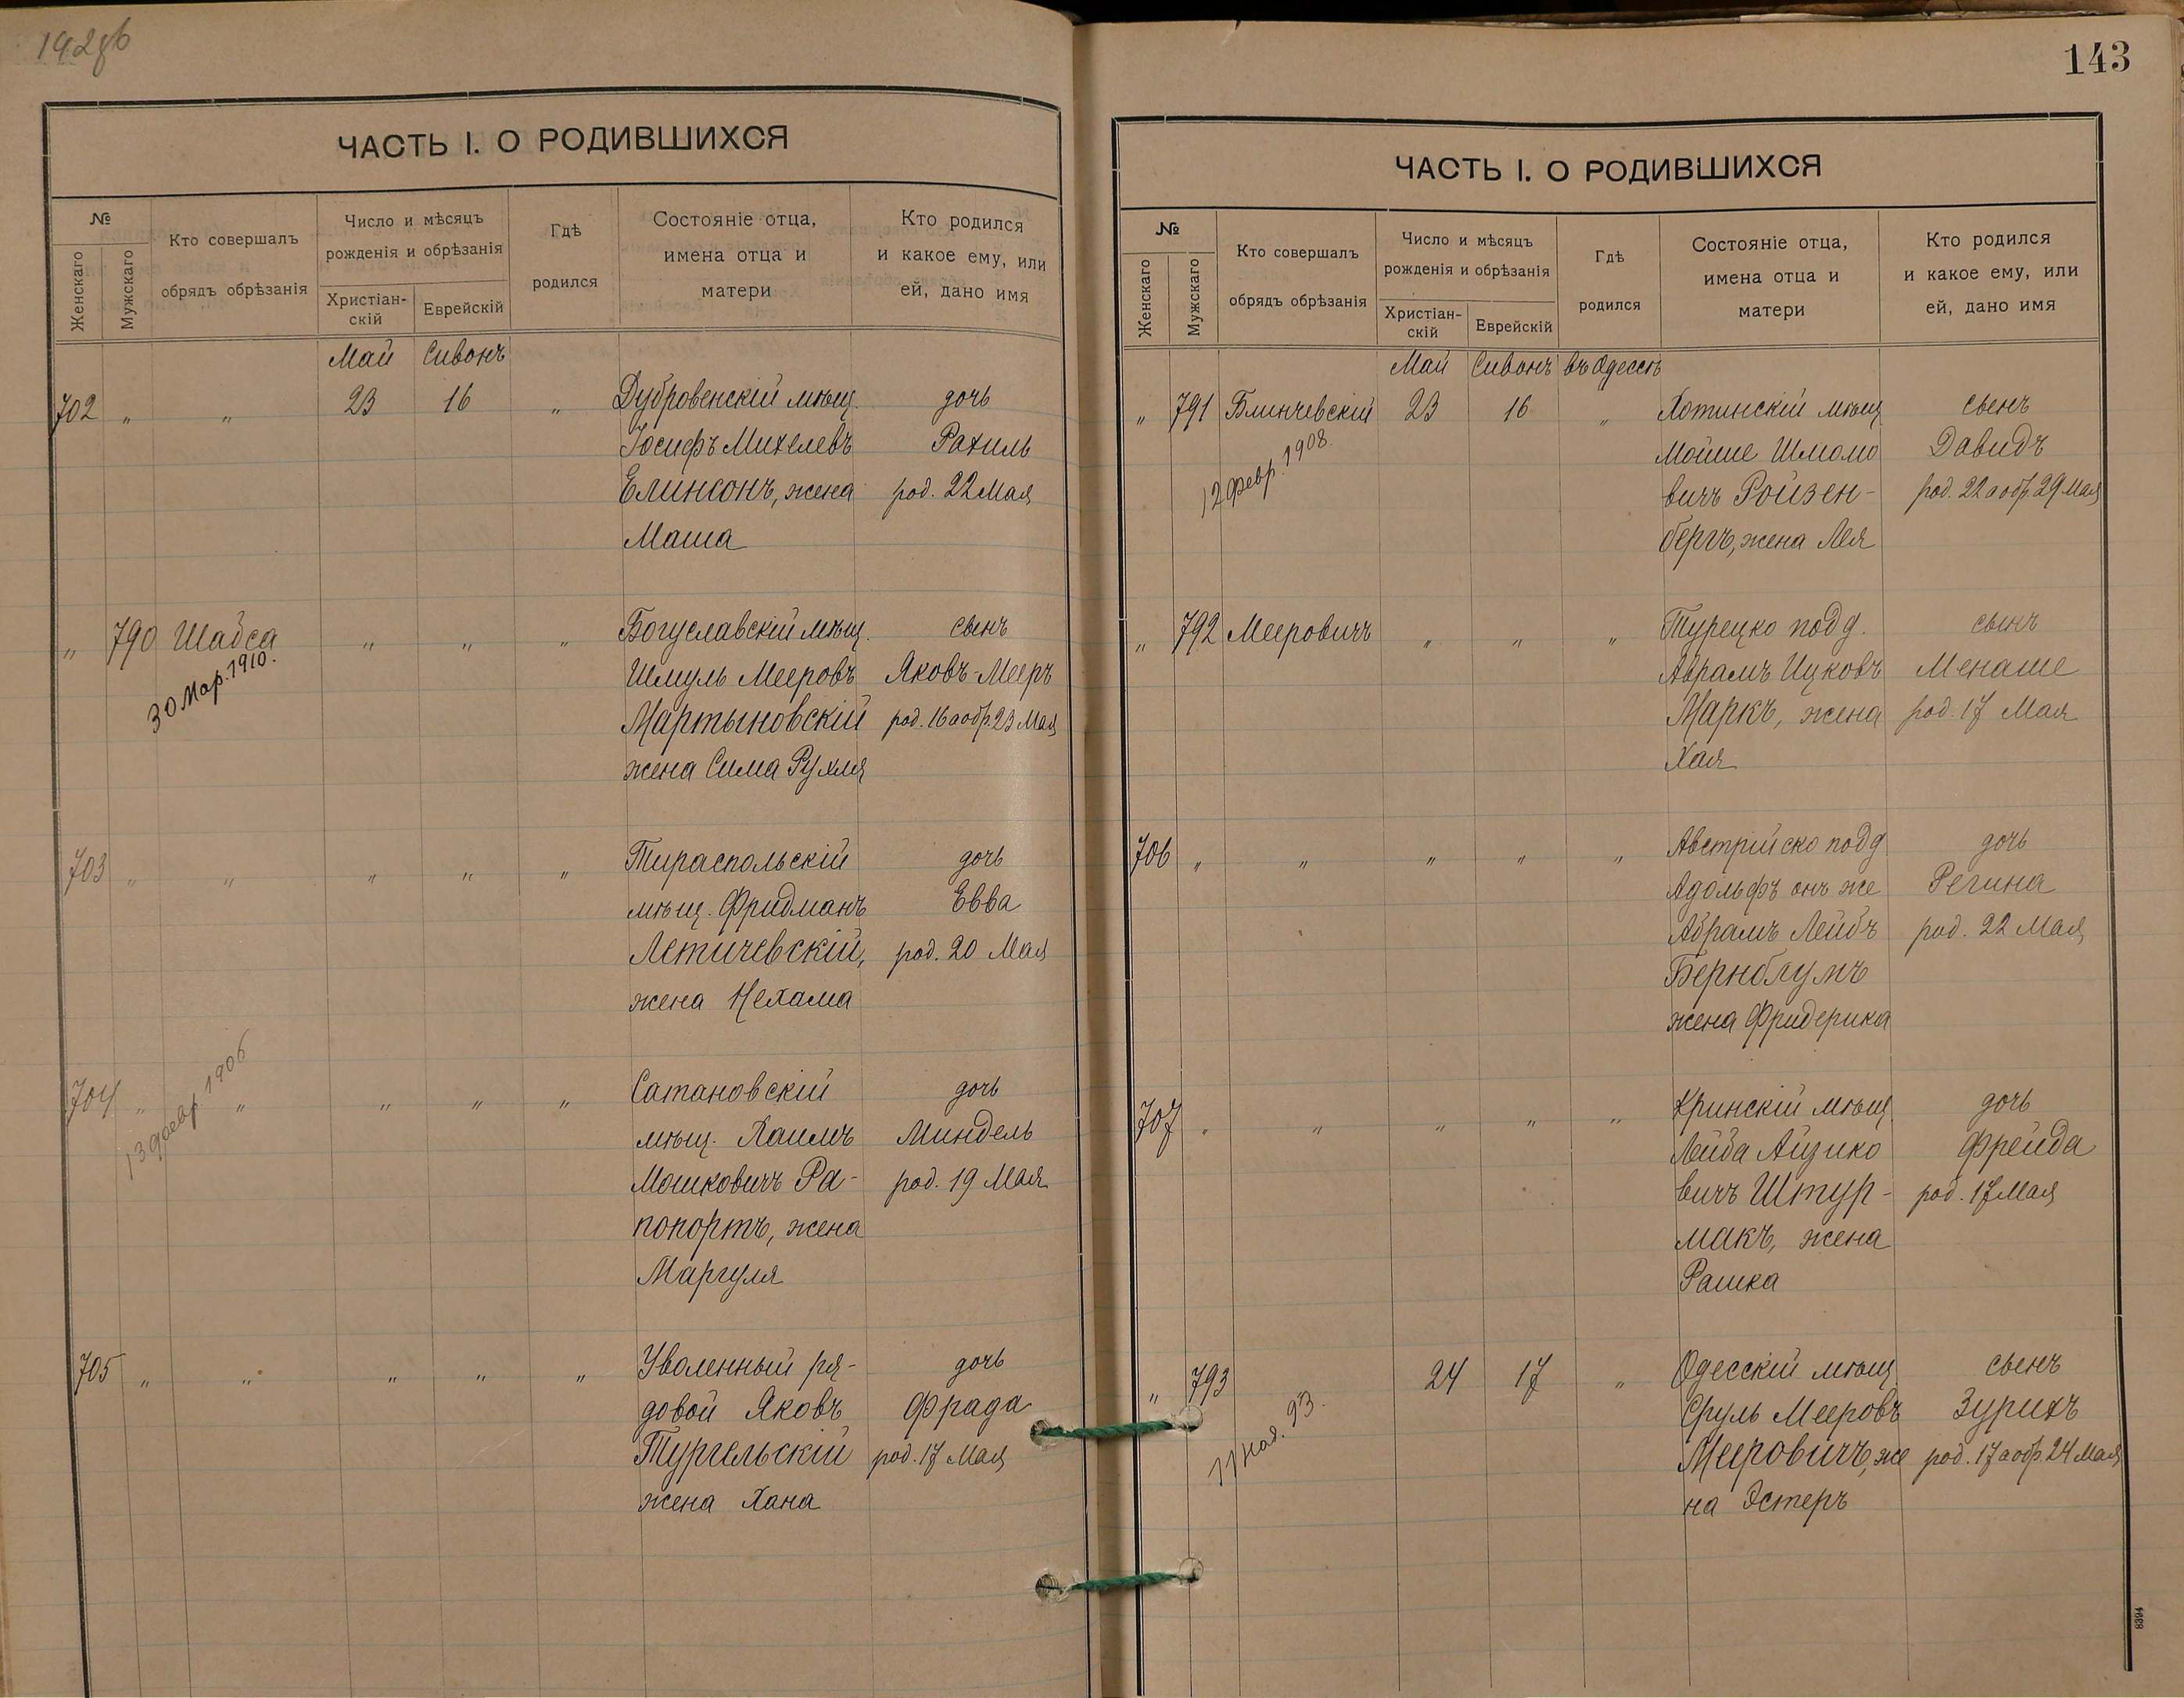 142об
ЧАСТЬ I. О РОДИВШИХСЯ
№
Женскаго
Мужскаго
Кто совершалъ
обрядъ обрѣзанія
Число и мѣсяцъ
рожденія и обрѣзанія
Христіан-
скій
Еврейскій
Гдѣ
родился
Состояніе отца,
имена отца и
матери
Кто родился
и какое ему, или
ей, дано имя
Май Сивонъ
702 „ „ 23 16 „ Дубровенскій мѣщ. дочь
Іосифъ Михелевъ Рахиль
Елинсонъ, жена род. 22 Мая
Маша
„ 790 Шабса „ „ „ Богуславскій мѣщ. сынъ
30 Мар. 1910.
Шмуль Мееровъ Яковъ-Мееръ
Мартыновскій род. 16 а обр. 23 Мая
жена Сима Рухля
703 „ „ „ „ „ Тираспольскій дочь
мѣщ. Фридманъ Евва
Летичевскій, род. 20 Мая
жена Нехама
704 „ „ „ „ „ Сатановскій дочь
13 февр 1906
мѣщ. Хаимъ Миндель
Мошковичъ Ра- род. 19 Мая
попортъ, жена
Маргуля
705 „ „ „ „ „ Уволенный ря- дочь
довой Яковъ Фрада
Тургельскій род. 17 Мая
жена Хана
143
ЧАСТЬ I. О РОДИВШИХСЯ
№
Женскаго
Мужскаго
Кто совершалъ
обрядъ обрѣзанія
Число и мѣсяцъ
рожденія и обрѣзанія
Христіан-
скій
Еврейскій
Гдѣ
родился
Состояніе отца,
имена отца и
матери
Кто родился
и какое ему, или
ей, дано имя
Май Сивонъ въ Одессѣ
„ 791 Блинчевскій 23 16 „ Хотинскій мѣщ сынъ
12 февр. 1908.
Мойше Шмомо Давидъ
вичъ Ройзен- род. 22 а обр. 29 Мая
бергъ, жена Лея
„ 792 Мееровичъ „ „ „ Турецко подд. сынъ
Аврамъ Ицковъ Менаше
Маркъ, жена род. 17 Мая
Хая
706 „ „ „ „ „ Австрійско подд дочь
Адольфъ онъ же Регина
Абрамъ Лейбъ род. 22 Мая
Бернблумъ
жена Фридерика
707 „ „ „ „ „ Кринскій мѣщ дочь
Лейба Айзико Фрейда
вичъ Штур- род. 17 Мая
макъ, жена
Рашка
„ 793 24 17 „ Одесскій мѣщ. сынъ
11 Ноя. 93.
Сруль Мееровъ Зурихъ
Мееровичъ, же род. 17 а обр. 24 Мая
на Эстеръ
8394